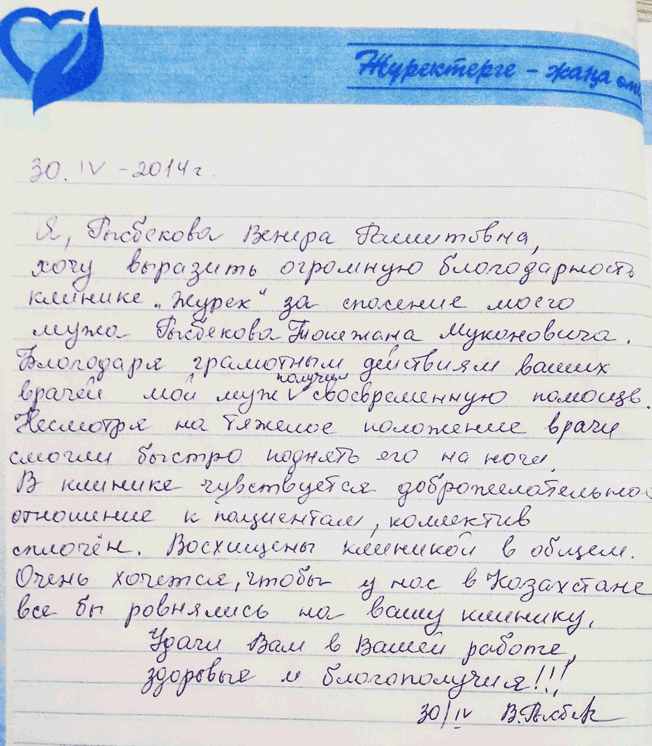 Жүректерге - жаңа
30. IV - 2014 г.
Я, Рысбекова Венера Рашитовна,
хочу выразить огромную благодарность
клинике "Журек" за спасение моего
мужа Рысбекова Токежана Мукановича.
Благодаря грамотным действиям ваших
врачей мой муж получил своевременную помощь.
Несмотря на тяжелое положение врачи
смогли быстро поднять его на ноги.
В клинике чувствуется доброжелательное
отношение к пациентам, коллектив
сплочён. Восхищены клиникой в общем.
Очень хочется, чтобы у нас в Казахстане
все бы ровнялись на вашу клинику.
Удачи Вам в Вашей работе,
здоровья и благополучия!!!
30/IV